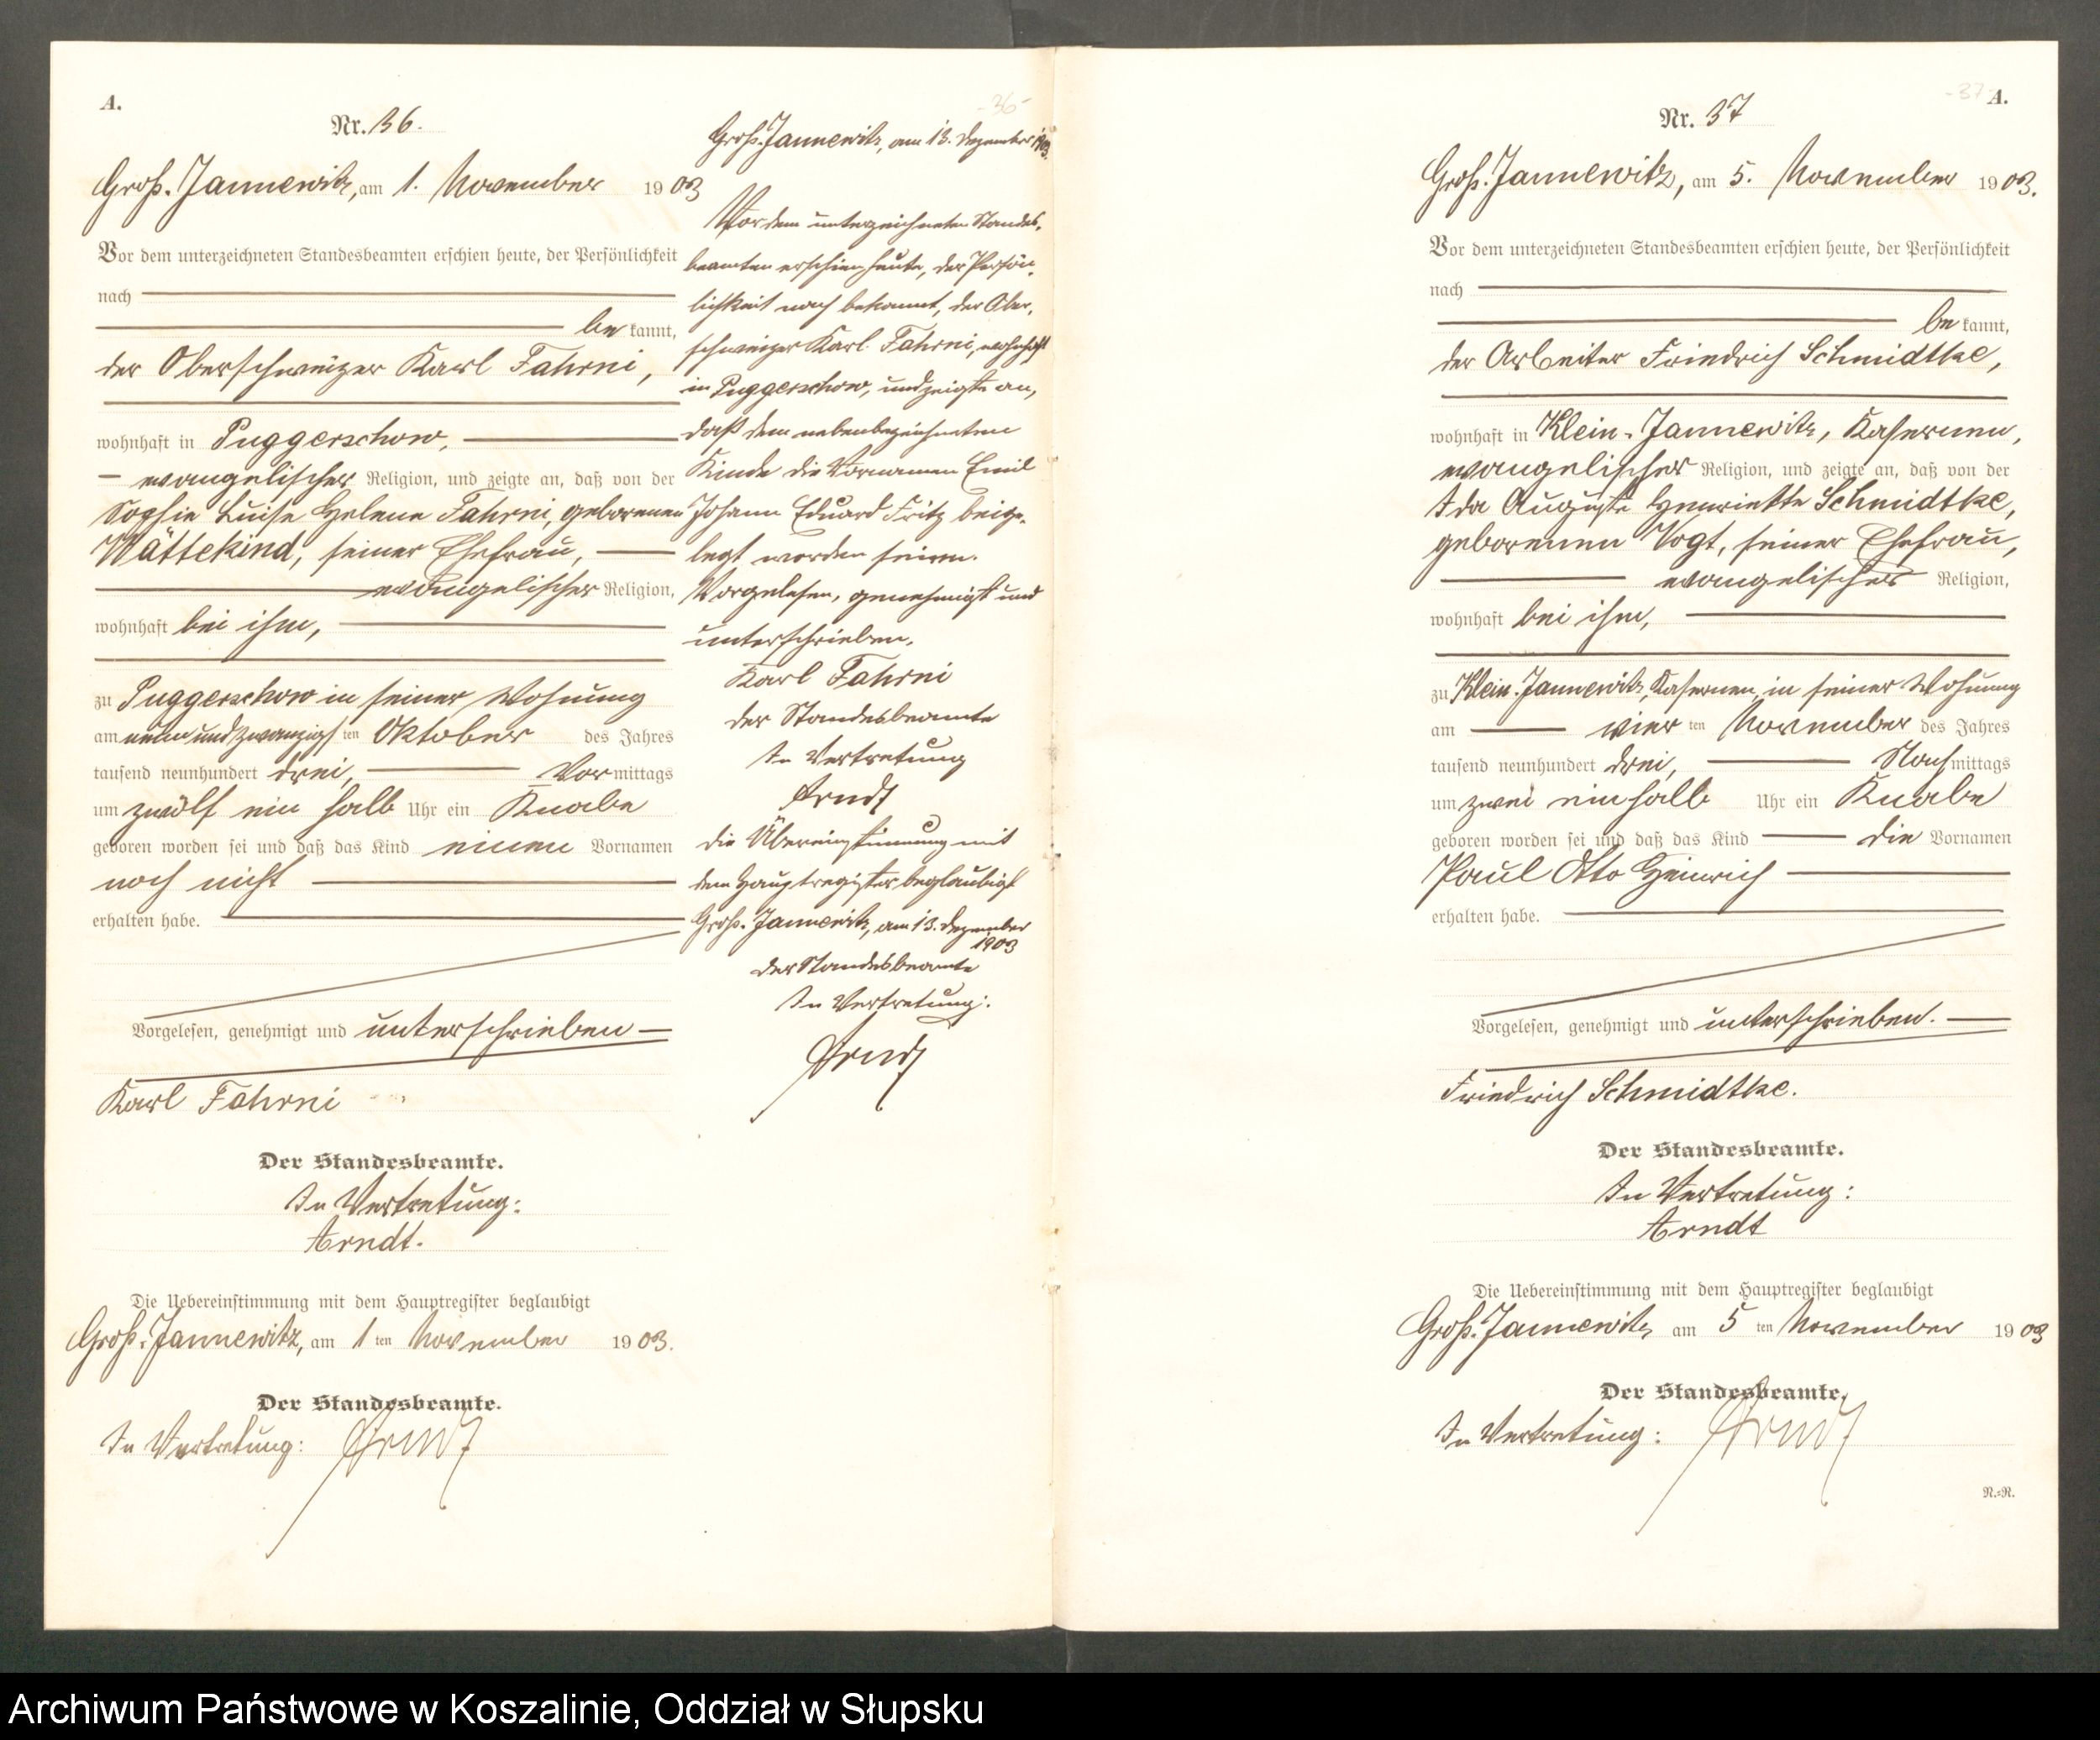 A.
Nr. 36.
Groß-Jannewitz, am 1. November 1903
Vor dem unterzeichneten Standesbeamten erschien heute, der Persönlichkeit
nach
be kannt,
der Oberschweizer Karl Fahrni,
wohnhaft in Puggerschow,
evangelischer Religion, und zeigte an, daß von der
Sophie Luise Helene Fahrni, geborenen
Wättekind, seiner Ehefrau,
evangelischer Religion,
wohnhaft bei ihm,
zu Puggerschow in seiner Wohnung
am neun und zwanzigsten Oktober des Jahres
tausend neunhundert drei, Vormittags
um zwölf ein halb Uhr ein Knabe
geboren worden sei und daß das Kind einen Vornamen
noch nicht
erhalten habe.
Vorgelesen, genehmigt und unterschrieben
Karl Fahrni
Der Standesbeamte.
In Vertretung:
Arndt.
Die Uebereinstimmung mit dem Hauptregister beglaubigt
Groß-Jannewitz, am 1 ten November 1903.
Der Standesbeamte.
In Vertretung: Arndt
-36-
Groß-Jannewitz, am 13. Dezember 1903.
Vor dem unterzeichneten Standes-
beamten erschien heute, der Persön-
lichkeit nach bekannt, der Ober-
schweizer Karl Fahrni, wohnhaft
in Puggerschow, und zeigte an,
daß dem nebenbezeichneten
Kinde die Vornamen Emil
Johann Eduard Fritz beige-
legt worden seien.
Vorgelesen, genehmigt und
unterschrieben.
Karl Fahrni
Der Standesbeamte
In Vertretung
Arndt
Die Übereinstimmung mit
dem Hauptregister beglaubigt
Groß-Jannewitz, am 13. Dezember
1903
Der Standesbeamte
In Vertretung:
Arndt
-37-
A.
Nr. 37
Groß-Jannewitz, am 5. November 1903.
Vor dem unterzeichneten Standesbeamten erschien heute, der Persönlichkeit
nach
be kannt,
der Arbeiter Friedrich Schmidtke,
wohnhaft in Klein-Jannewitz, Kasernen,
evangelischer Religion, und zeigte an, daß von der
Ida Auguste Henriette Schmidtke,
geborenen Vogt, seiner Ehefrau,
evangelischer Religion,
wohnhaft bei ihm,
zu Klein-Jannewitz, Kasernen, in seiner Wohnung
am vier ten November des Jahres
tausend neunhundert drei, Nachmittags
um zwei ein halb Uhr ein Knabe
geboren worden sei und daß das Kind die Vornamen
Paul Otto Heinrich
erhalten habe.
Vorgelesen, genehmigt und unterschrieben.
Friedrich Schmidtke.
Der Standesbeamte.
In Vertretung:
Arndt
Die Uebereinstimmung mit dem Hauptregister beglaubigt
Groß-Jannewitz am 5 ten November 1903
Der Standesbeamte.
In Vertretung: Arndt
N.-R.
Archiwum Państwowe w Koszalinie, Oddział w Słupsku